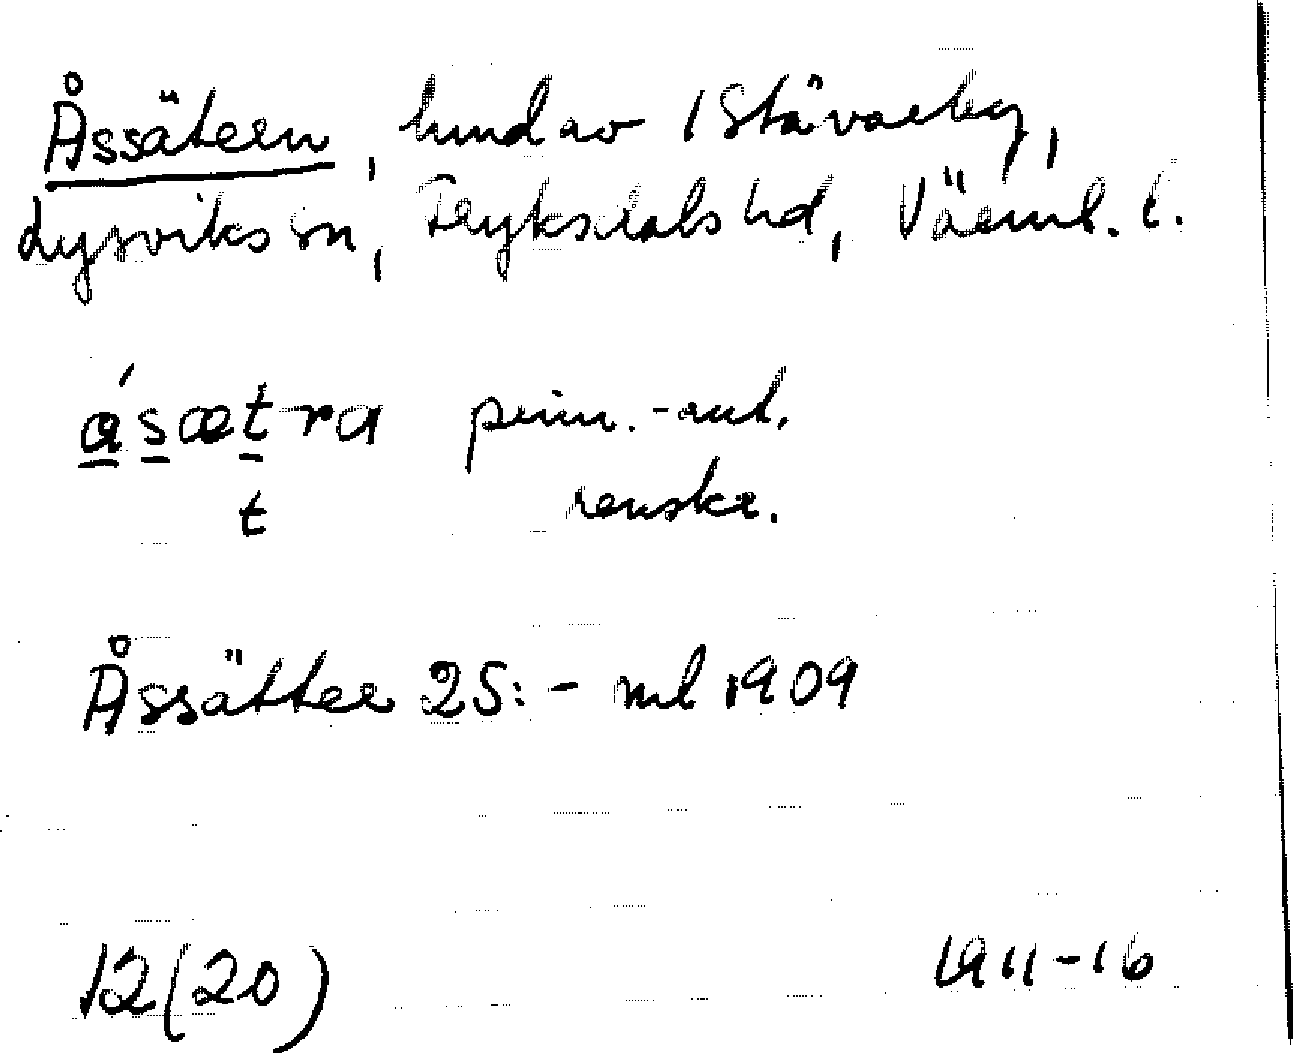 Åssätern, lund av 1 Stävarby,
Lysviks sn, Fryksdals hd, Värml. l.
ásætra penn.-ant.
t renskr.
Åssätter 25:- ml 1909
12(20) 1911-16